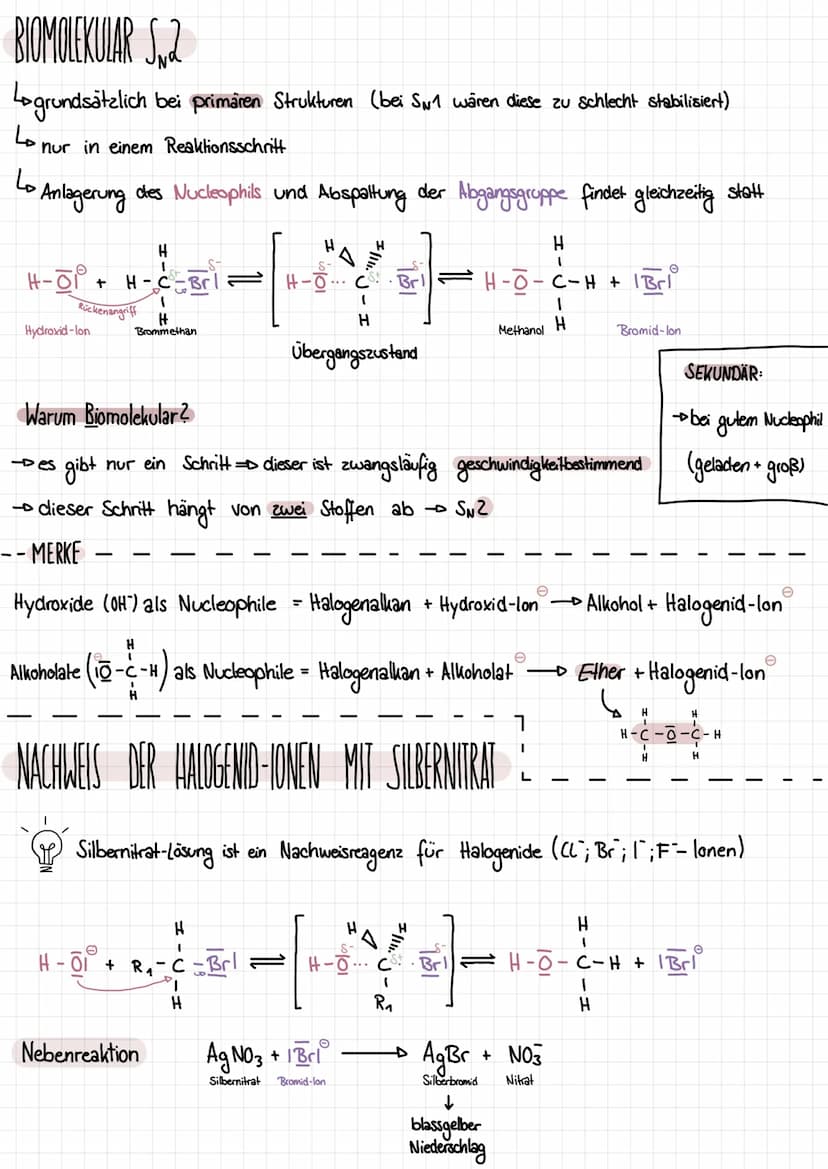 BIOMOLEKULAR SN2
↳ grundsätzlich bei primären Strukturen (bei SN1 wären diese zu schlecht stabilisiert)
↳ nur in einem Reaktionsschritt
↳ Anlagerung des Nucleophils und Abspaltung der Abgangsgruppe findet gleichzeitig statt
H H H H
H-O|⊖ + H-C δ+ -Br| δ- ⇌ [H-O δ- ... C δ+ · Br| δ-] ⇌ H-O-C-H + |Br|⊖
Rückenangriff H H H
Hydroxid-Ion Brommethan Methanol Bromid-Ion
Übergangszustand
SEKUNDÄR:
→ bei gutem Nucleophil
(geladen + groß)
Warum Biomolekular?
→ es gibt nur ein Schritt ⇒ dieser ist zwangsläufig geschwindigkeitbestimmend
→ dieser Schritt hängt von zwei Stoffen ab → SN2
-- MERKE
Hydroxide (OH⁻) als Nucleophile = Halogenalkan + Hydroxid-Ion⊖ → Alkohol + Halogenid-Ion⊖
H
Alkoholate (⊖|O-C-H) als Nucleophile = Halogenalkan + Alkoholat⊖ → Ether + Halogenid-Ion⊖
H
H H
H-C-O-C-H
H H
NACHWEIS DER HALOGENID-IONEN MIT SILBERNITRAT
Silbernitrat-Lösung ist ein Nachweisreagenz für Halogenide (Cl⁻; Br⁻; I⁻; F⁻- Ionen)
H H H H
H-O|⊖ + R1-C-Br| ⇌ [H-O δ- ... C δ+ · Br| δ-] ⇌ H-O-C-H + |Br|⊖
H R1 H
Nebenreaktion AgNO3 + |Br|⊖ → AgBr + NO3⁻
Silbernitrat Bromid-Ion Silberbromid Nitrat
↓
blassgelber
Niederschlag